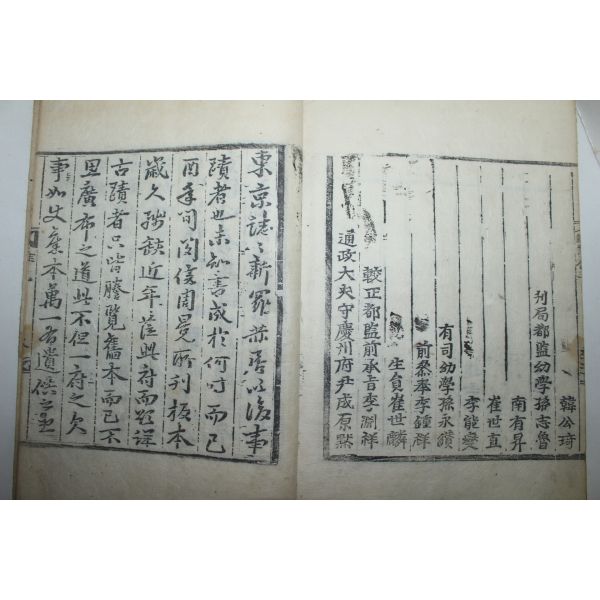 韓 琦
刊局都監幼學孫志魯
南有昇
崔世直
李能燮
有司幼學孫永
前參奉李鍾祥
生員崔世麟
較正都監前承旨李淵祥
通政大夫守慶州府尹成原黙
東京誌〻新羅 以後事
蹟者也未知書成於何時而已
酉年間閔侯周冕所刊板本
歲久殘缺近年莅 府而 詳
古蹟者只皆謄覽舊本而已不
思廣布之道此不但一府之欠
事如 舊本萬一有遺佚之